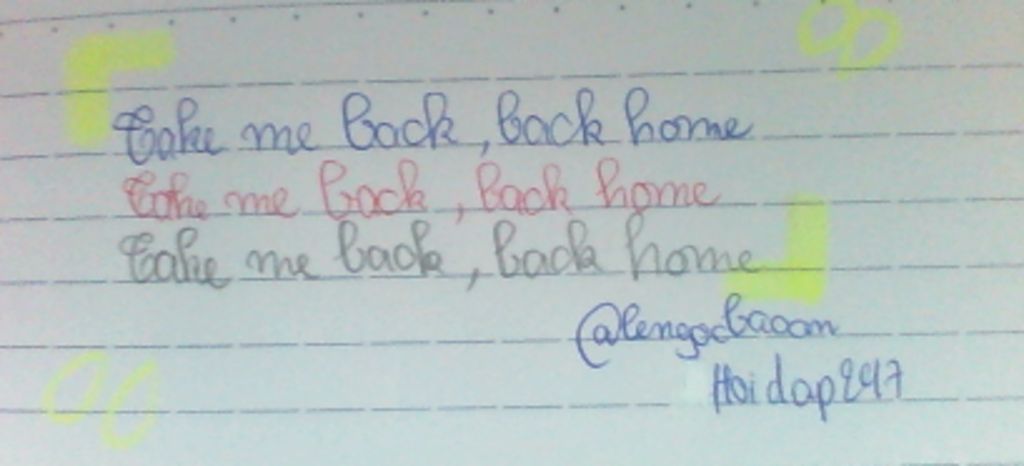 Take me back, back home
Take me back, back home
Take me back, back home
@lengocbaoan
Hoidap247